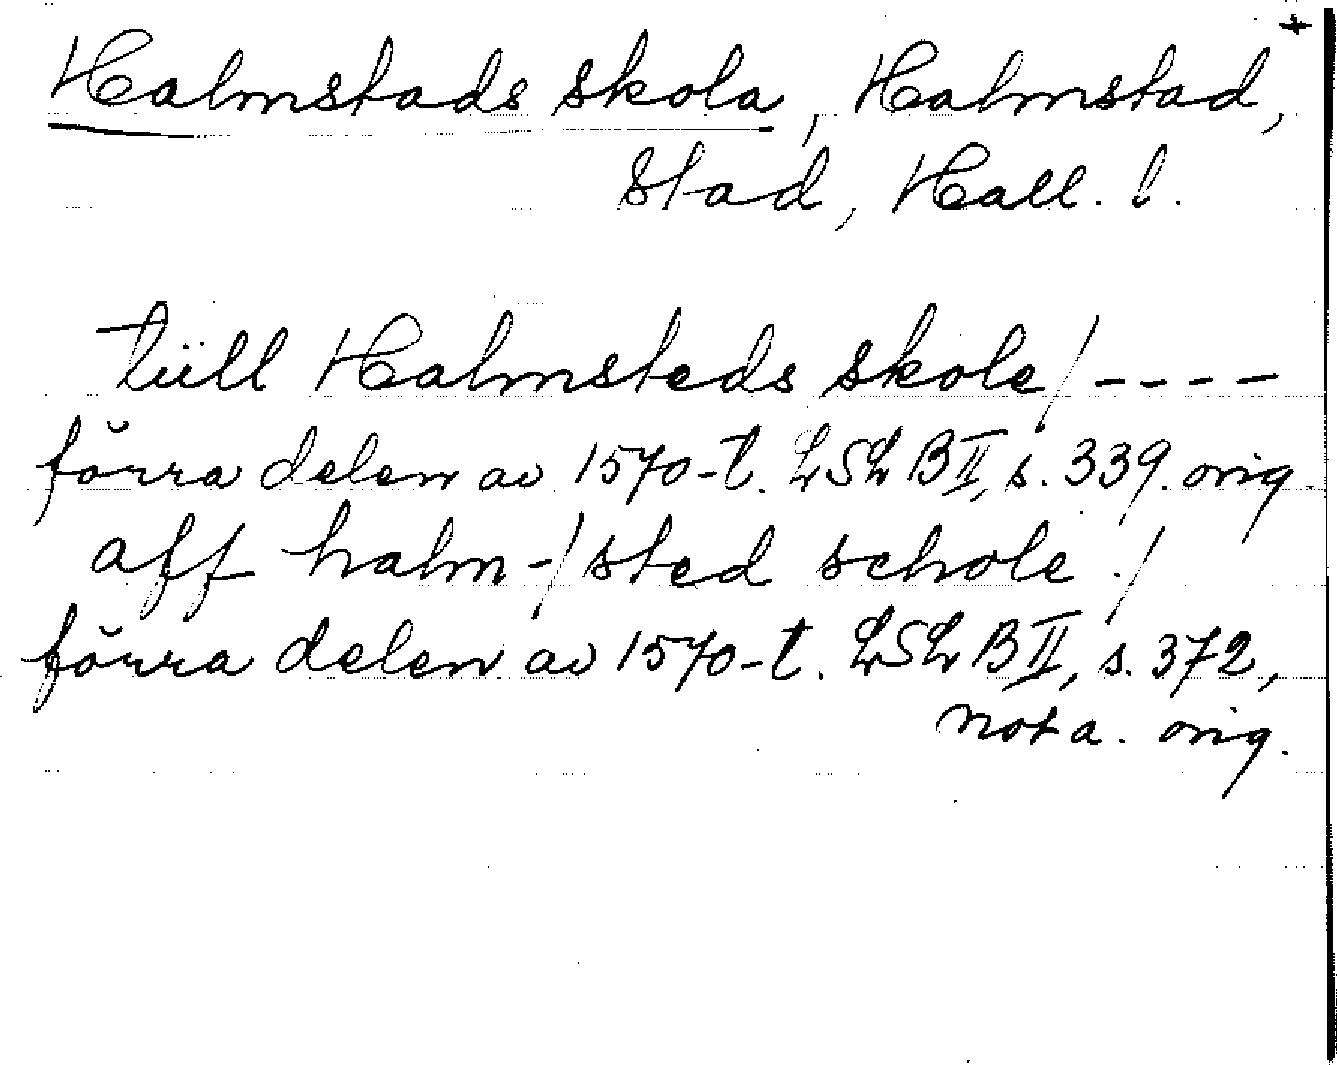 +
Halmstads skola, Halmstad,
stad, Hall. l.
tüll Halmsteds skole/----
förra delen av 1570-t. LSL B II, s. 339. orig
aff halm-/sted schole ./
förra delen av 1570-t. LSL B II, s. 372,
not a. orig.